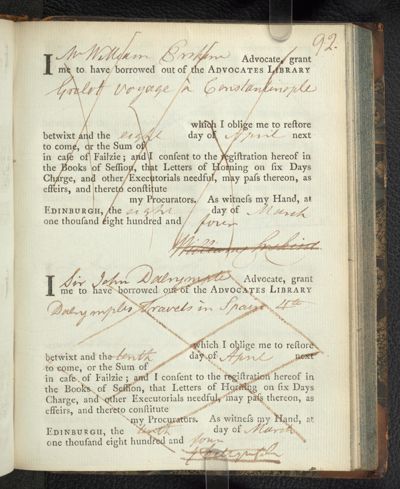 92.
I Mr William Erskine Advocate, grant
me to have borrowed out of the ADVOCATES LIBRARY
Grelot voyage a Constantinople
which I oblige me to reſtore
betwixt and the eight day of April next
to come, or the Sum of
in caſe of Failzie; and I conſent to the regiſtration hereof in
the Books of Seſſion, that Letters of Horning on ſix Days
Charge, and other Executorials needful, may paſs thereon, as
effeirs, and thereto conſtitute
my Procurators. As witneſs my Hand, at
EDINBURGH, the eight day of March
one thouſand eight hundred and four
William Erskine
I Sir John Dalrymple Advocate, grant
me to have borrowed out of the ADVOCATES LIBRARY
Dalrymples Travels in Spain 4to
which I oblige me to reſtore
betwixt and the tenth day of April next
to come, or the Sum of
in caſe of Failzie; and I conſent to the regiſtration hereof in
the Books of Seſſion, that Letters of Horning on ſix Days
Charge, and other Executorials needful, may paſs thereon, as
effeirs, and thereto conſtitute
my Procurators. As witneſs my Hand, at
EDINBURGH, the tenth day of March
one thouſand eight hundred and four